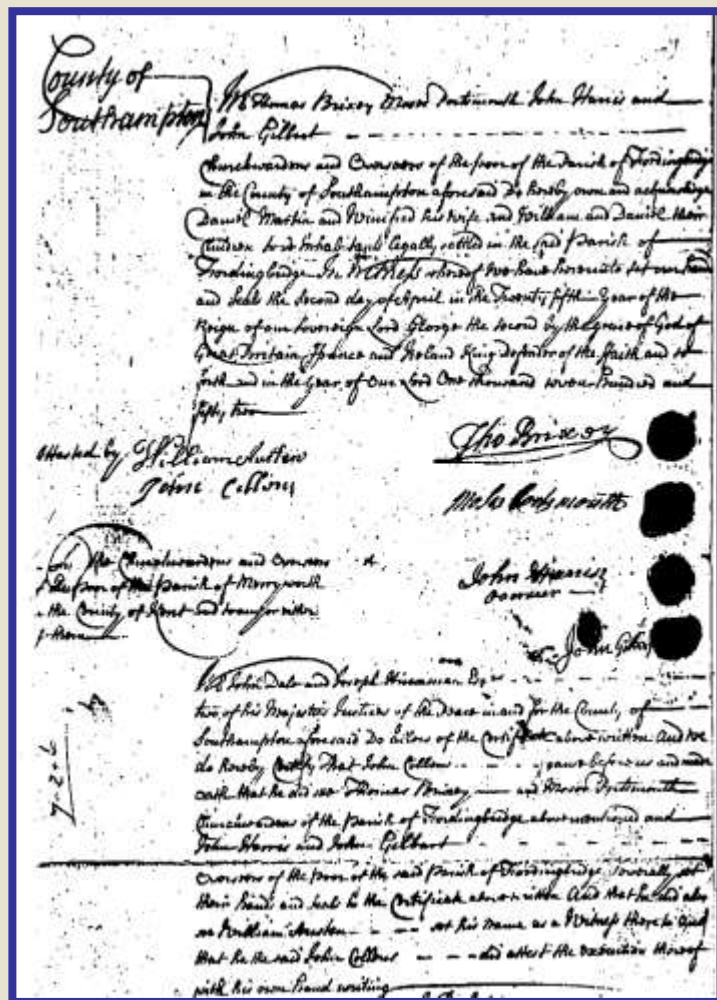 County of
Southampton
We Thomas Brixey Moses Portsmouth John Harris and
John Gilbert
Churchwardens and Overseers of the poor of the Parish of Fordingbridge
in the County of Southampton aforesaid Do hereby own and acknowledge
Daniel Martin and Winifred his wife and William and Daniel their
Children to be Inhabitants legally settled in the said Parish of
Fordingbridge In Witness whereof we have hereunto set our hands
and Seals the Second day of April in the Twenty fifth Year of the
Reign of our Sovereign Lord George the second by the grace of God of
Great Britain France and Ireland King Defender of the Faith and so
forth and in the Year of Our Lord One thousand seven hundred and
fifty two
Attested by William Austen
John Collins
Tho Brixey
Moses Portsmouth
John Harris
overseer
John Gilbert
To the Churchwardens and Overseers
of the poor of the Parish of Merryworth
the County of Kent and to any or either
of them
We John Dale and Joseph Esqrs
two of his Majesties Justices of the Peace in and for the County of
Southampton aforesaid Do allow of the Certificate above written And we
do hereby Certify That John Collens came before us and made
oath that he did see Thomas Brixey and Moses Portsmouth
Churchwardens of the Parish of Fordingbridge above mentioned and
John Harris and John Gilbert
Overseers of the Poor of the said Parish of Fordingbridge severally set
their hands and seals to the Certificate above written And that he and also
William Austen set his name as a Witness thereto And
that he the said John Collens did attest the execution thereof
with his own hand writing